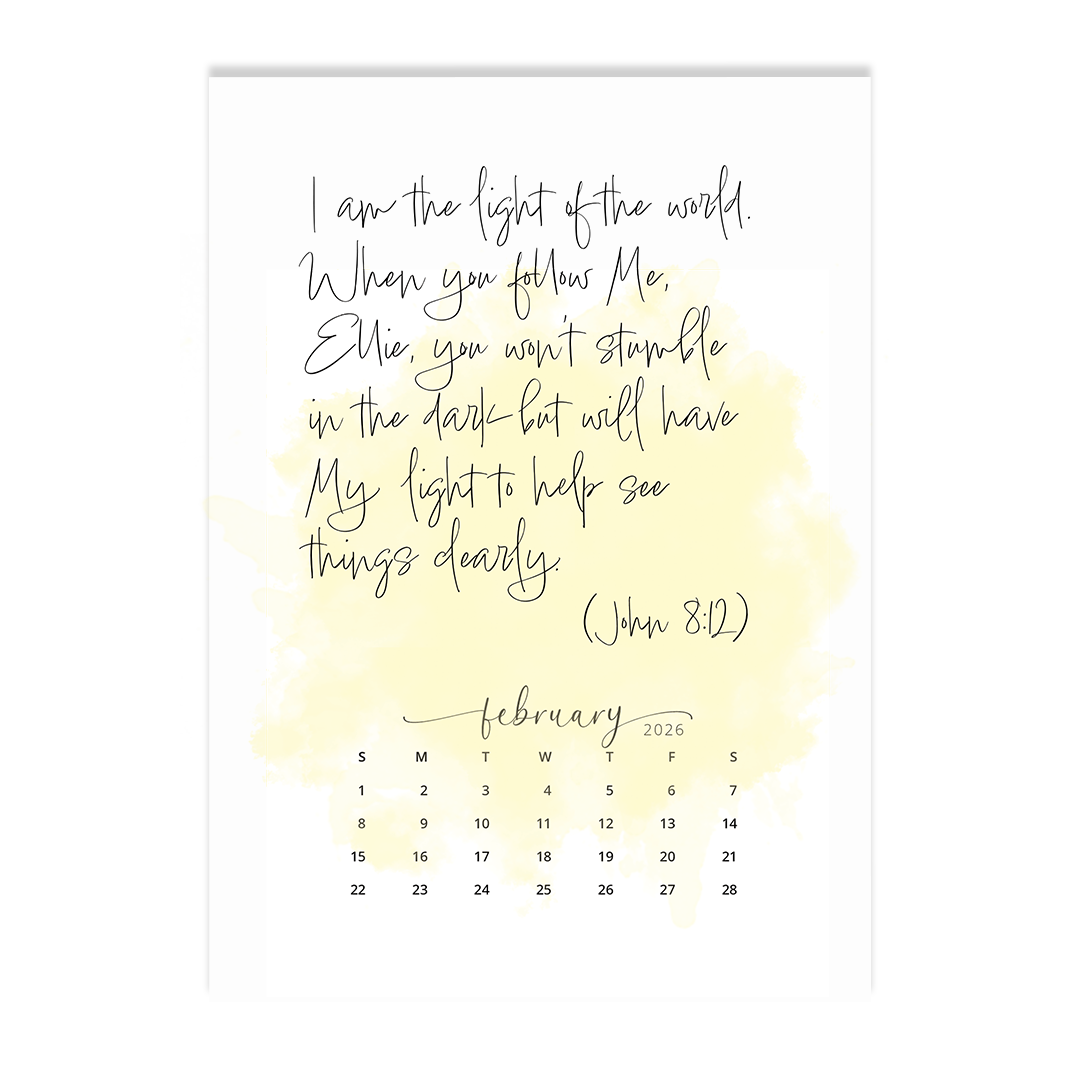 I am the light of the world.
When you follow Me,
Ellie, you won't stumble
in the dark but will have
My light to help see
things clearly.
(John 8:12)
february 2026
S M T W T F S
1 2 3 4 5 6 7
8 9 10 11 12 13 14
15 16 17 18 19 20 21
22 23 24 25 26 27 28